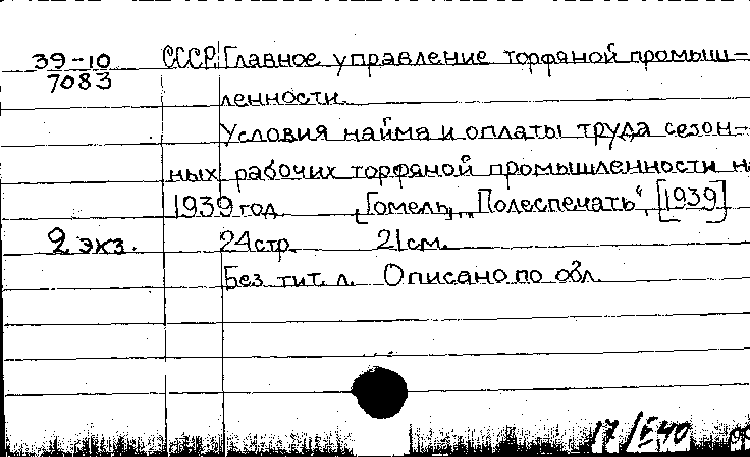 39-10 СССР. Главное управление торфяной промыш-
7083
ленности.
Условия найма и оплаты труда сезон-
ных рабочих торфяной промышленности н
1939 год. Гомель, „Полеспечать“, [1939]
2 экз. 24 стр. 21 см.
Без тит. л. Описано по обл.
17/Е40